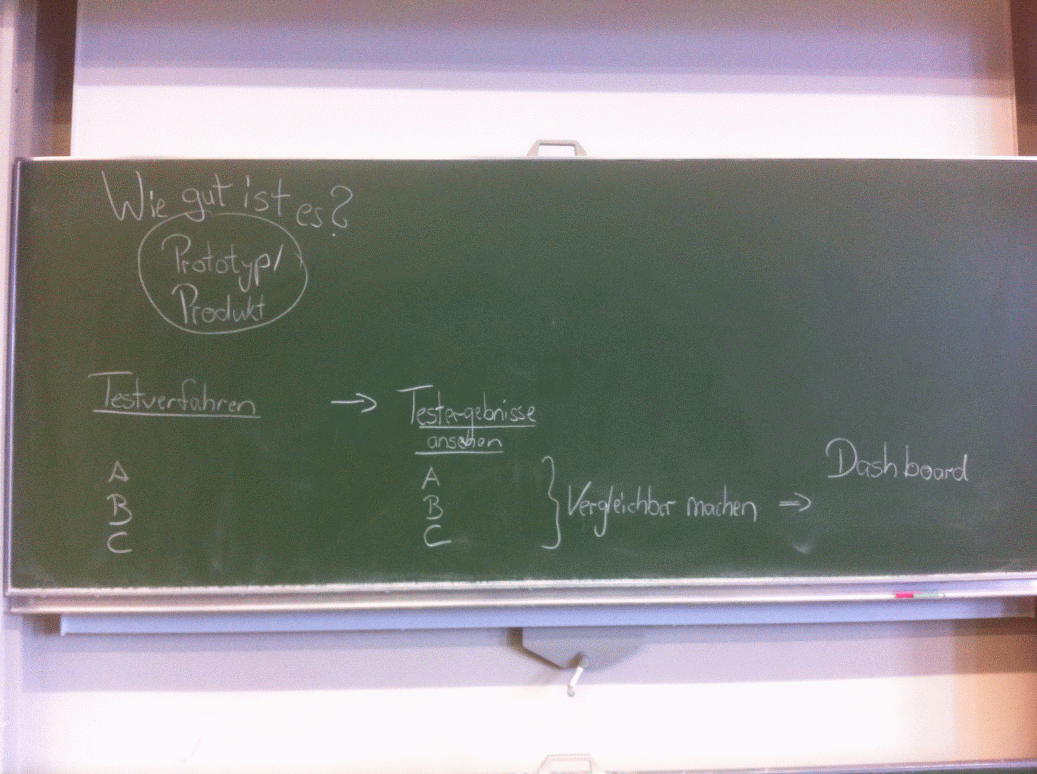 Wie gut ist es?
Prototyp/
Produkt
Testverfahren → Testergebnisse
ansehen
A
B
C
A
B
C
} Vergleichbar machen →
Dashboard